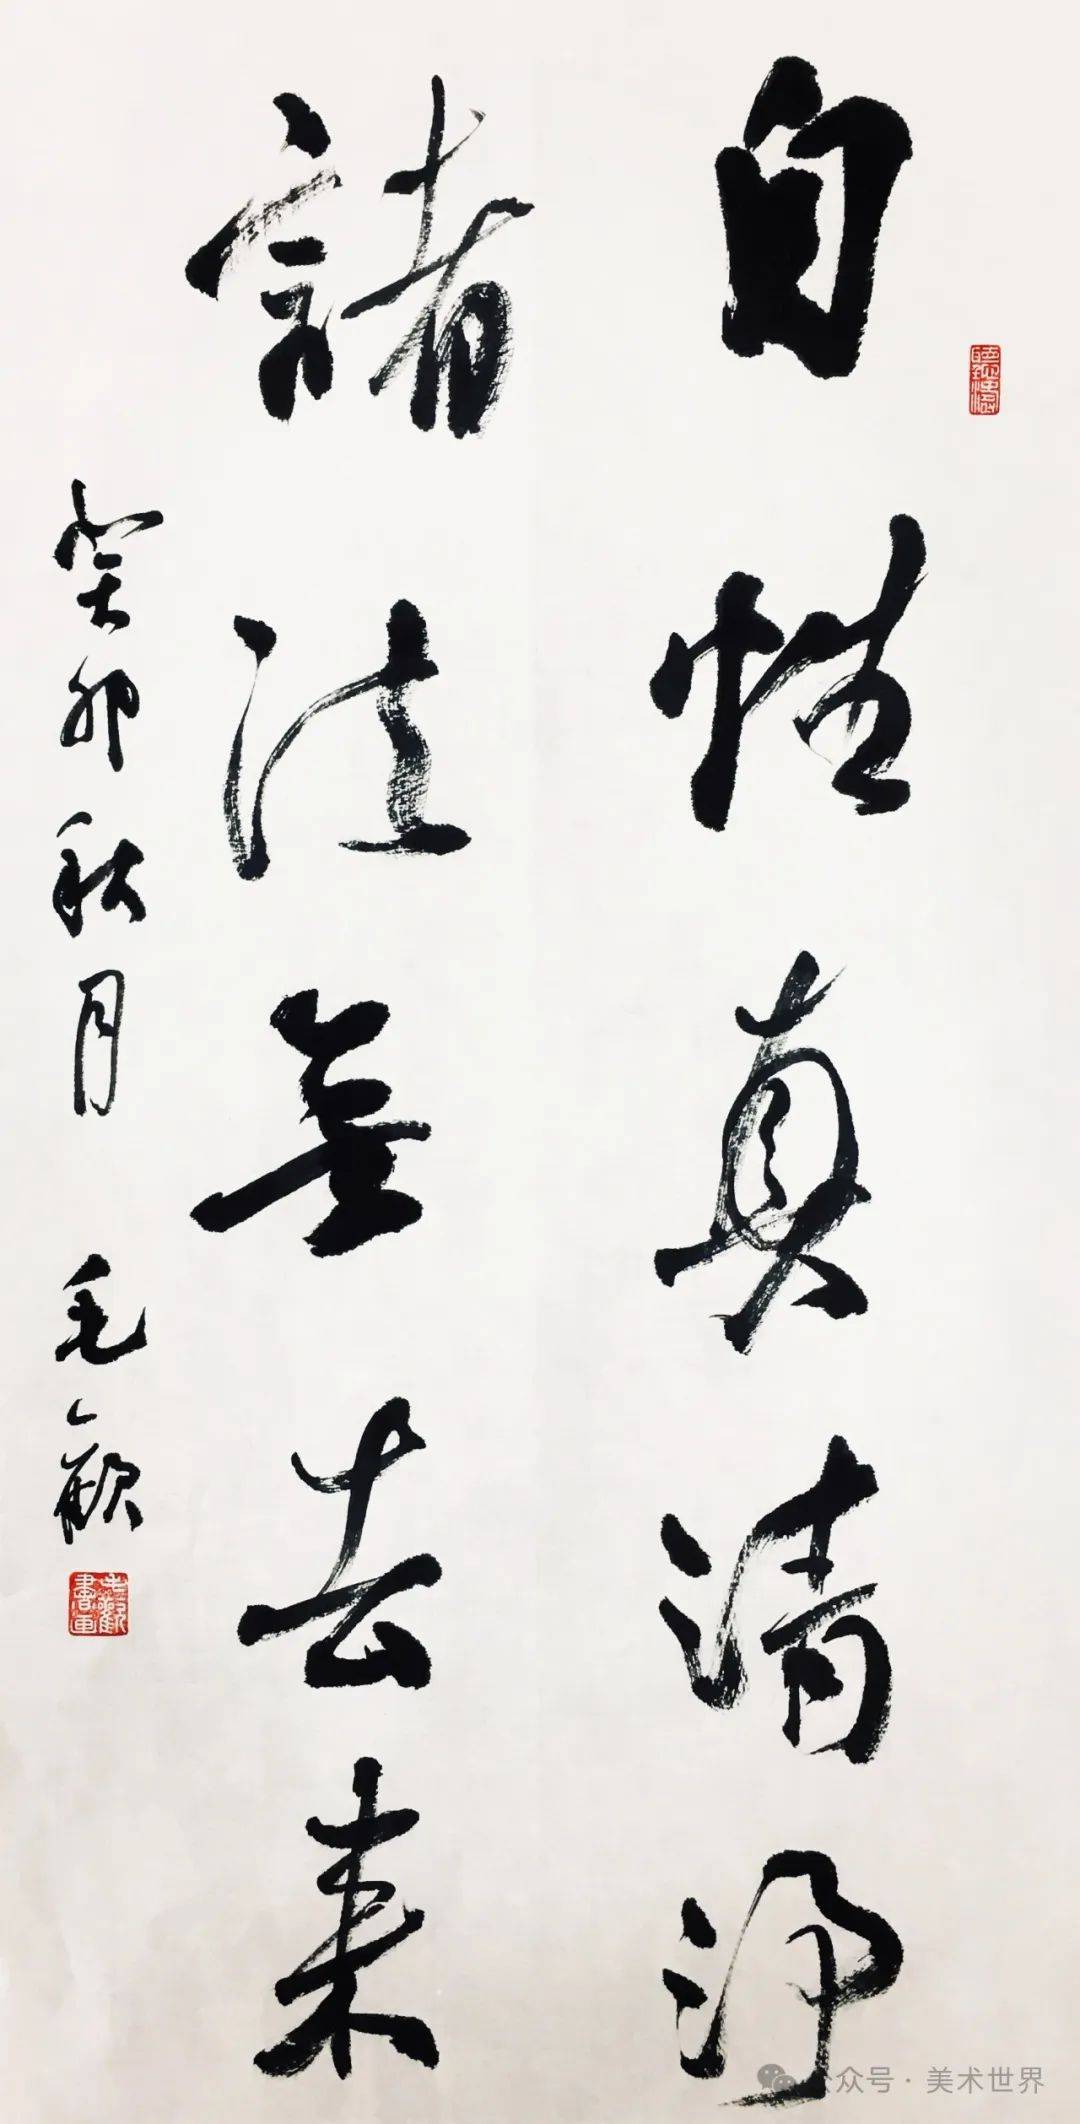 自性真清淨
諸法無去來
癸卯秋月 毛觀
公众号 · 美术世界